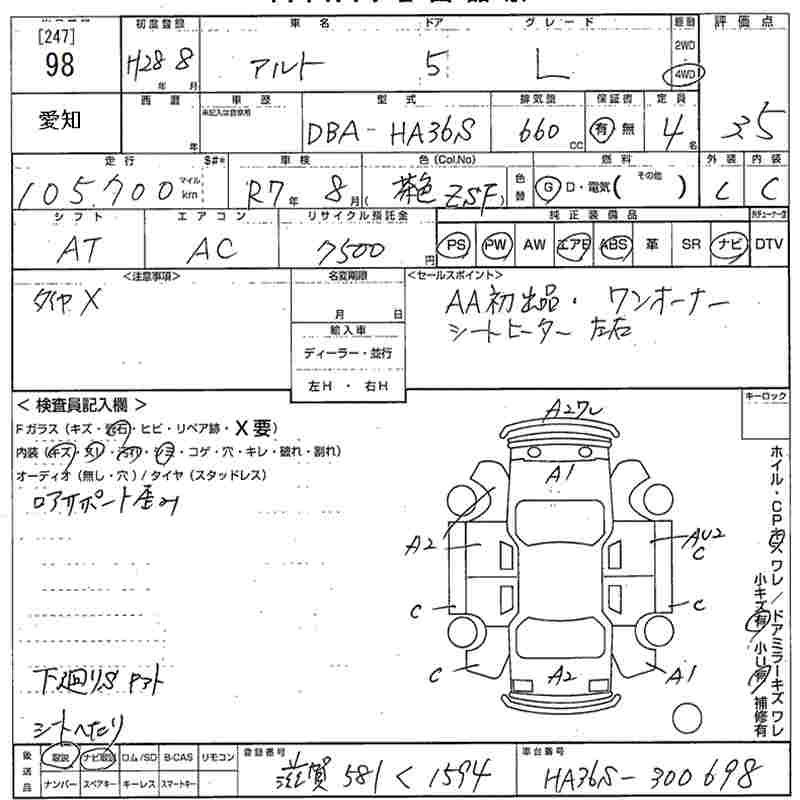 [247]
98
初度登録
H28 8
年 月
車名
アルト
ドア
5
グレード
L
2WD
4WD
評価点
3.5
愛知
西暦
年
車歴
型式
DBA-HA36S
排気量
660
CC
保証書
有 無
定員
4
名
走行
105,700
マイル
km
S#*
車検
R7 年 8 月
色 (Col.No)
茶色 ZSF
色替
燃料
G D・電気 ( その他 )
外装
C
内装
C
シフト
AT
エアコン
AC
リサイクル預託金
7500
円
純正装備品
PS PW AW エアB ABS 革 SR ナビ DTV
<注意事項>
タイヤ X
名変期限
月 日
輸入車
ディーラー・並行
左H ・ 右H
<セールスポイント>
AA初出品・ワンオーナー
シートヒーター 左右
< 検査員記入欄 >
Fガラス (キズ・飛石・ヒビ・リペア跡・X要)
オーディオ (無し・穴) / タイヤ (スタッドレス)
ロアサポート歪み
下廻りS
シートへたり
キーロック
A1
A2
AU2
C
C
C
C
A2
A1
後送品
取説 ナビ取説 ロム/SD B-CAS リモコン
ナンバー スペアキー キーレス スマートキー
登録番号
滋賀 581 く 1594
車台番号
HA36S-300698